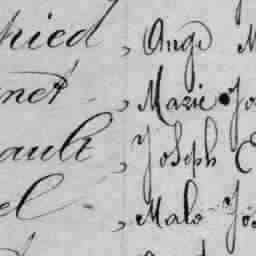 hied, Ange M
net, Marie Jo
ault, Joseph C
el-, Malo Jos